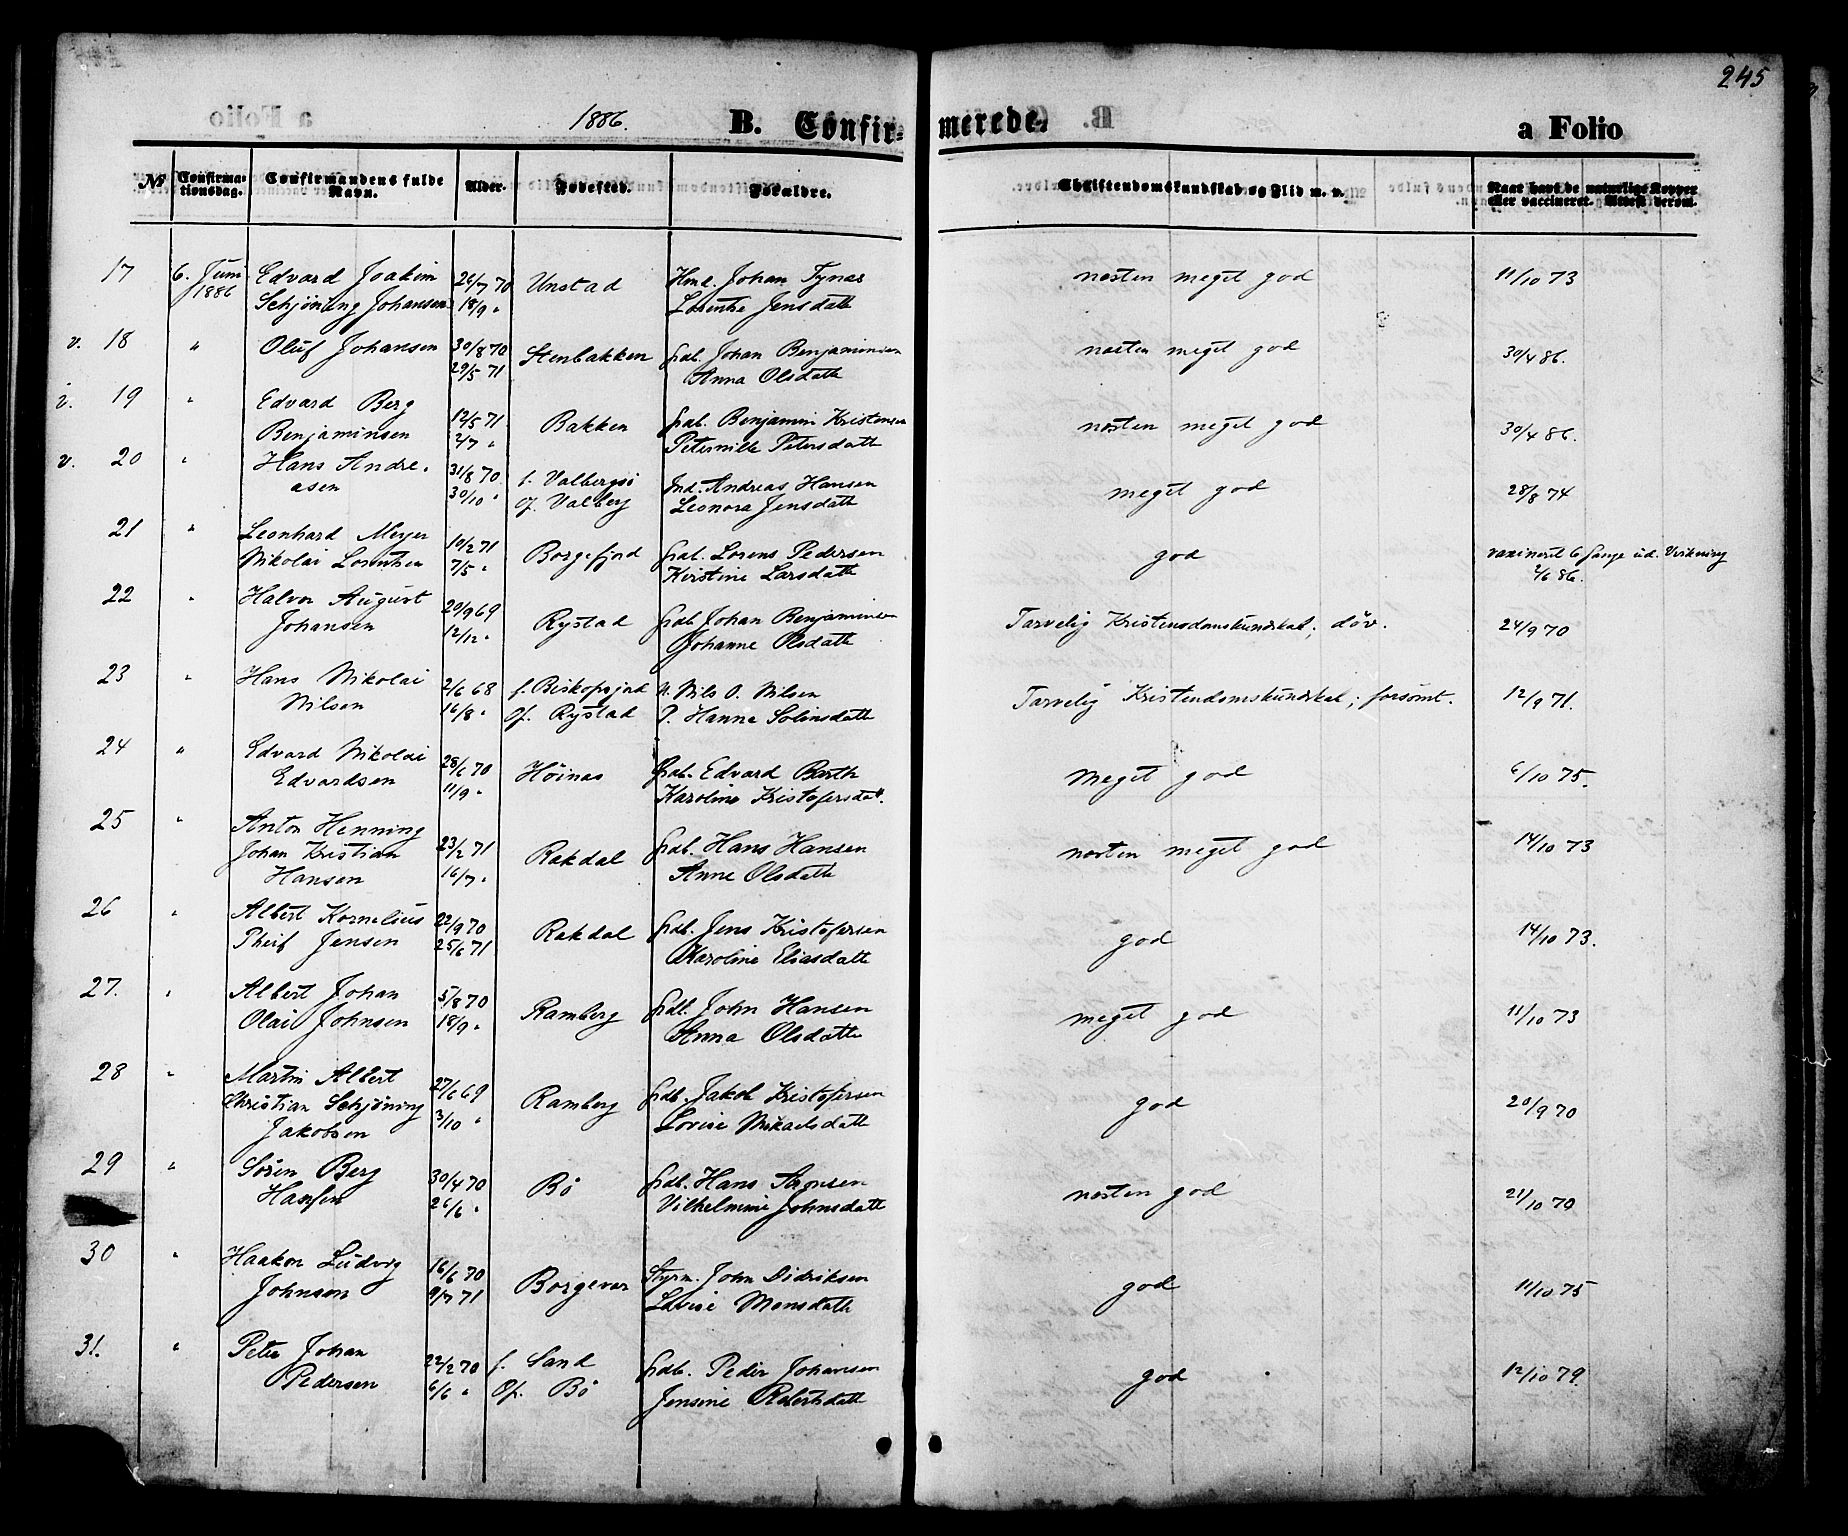 245
1886.
B. Confirmerede. a Folio
No Confirmationsdag. Confirmandens fulde Navn. Alder. Fødested. Forældre. Christendomskundskab og Flid m. v. Naar havt de naturlige Kopper eller vaccineret. Attest derom.
17 6. Juni Edvard Joakim 26/7 70 Unstad Johan Tynes næsten meget god 11/10 73
1886 Schjöning Johansen 18/9 " Lorentse Jensdatt
v. 18 " Oluf Johansen 30/8 70 Stenbakken Gdb. Johan Benjaminsen næsten meget god 30/4 86.
29/5 71 Anna Olsdatt
v. 19 " Edvard Berg 12/5 71 Bakken Gdb. Benjamin Kristensen næsten meget god 30/4 86.
Benjaminsen 2/7 " Petersdatt
v. 20 " Hans Andre- 31/8 70 f. Valbergsö Ind. Andreas Hansen meget god 28/8 74
asen 30/10 " of. Valberg Leonora Jensdatt
21 " Leonhard Meyer 10/2 71 Borgefjord Gdb. Lorens Pedersen god vaxineret 6 Gange ud. Virkning
Nikolai Lorentsen 7/5 " Kirstine Larsdatt 2/6 86.
22 " Halvor August 20/9 69 Rystad Gdb Johan Benjaminsen Tarvelig Kristendomskundskab; döv. 24/9 70
Johansen 12/12 " Johanne Olsdatt
23 " Hans Nikolai 2/6 68 f. Biskopsjord Nils O. Nilsen Tarvelig Kristendomskundskab; forsömt. 12/9 71.
Nilsen 16/8 " Of. Rystad Hanna
24 " Edvard Nikolai 28/6 70 Höinæs Gdb. Edvard Barth Meget god 6/10 75.
Edvardsen 11/9 " Karoline Kristofersdatt.
25 " Anton Henning 23/2 71 Rakdal Gdb. Hans Hansen næsten meget god 14/10 73
Johan Kristian 16/7 " Anne Olsdatt
Hansen
26 " Albert Kornelius 22/9 70 Rakdal Gdb. Jens Kristofersen god 14/10 73.
Jensen 25/6 71 Karoline Eliasdatt
27. " Albert Johan 5/8 70 Ramberg Gdb. John Hansen meget god 11/10 73
Olai Johnsen 18/9 " Anna Olsdatt
28 " Martin Albert 27/6 69 Ramberg Gdb. Jakob Kristofersen god 20/9 70
Christian Schjöning 3/10 " Lovise Mikaelsdatt
Jakobsen
29 " Sören Berg 30/4 70 Bö Gdb. Hans Aronsen næsten god 21/10 79
Hansen 26/6 " Vilhelmine Johnsdatt
30 " Haakon Ludvig 16/6 70 Borgevær Styrm. John Didriksen god 11/10 75
Johnsen 9/7 71 Lovise Monsdatt
31. " Peter Johan 22/2 70 f. Sand Gdb. Peder Johansen god 12/10 79.
Pedersen 6/6 " Of. Bö Jensine Robertsdatt